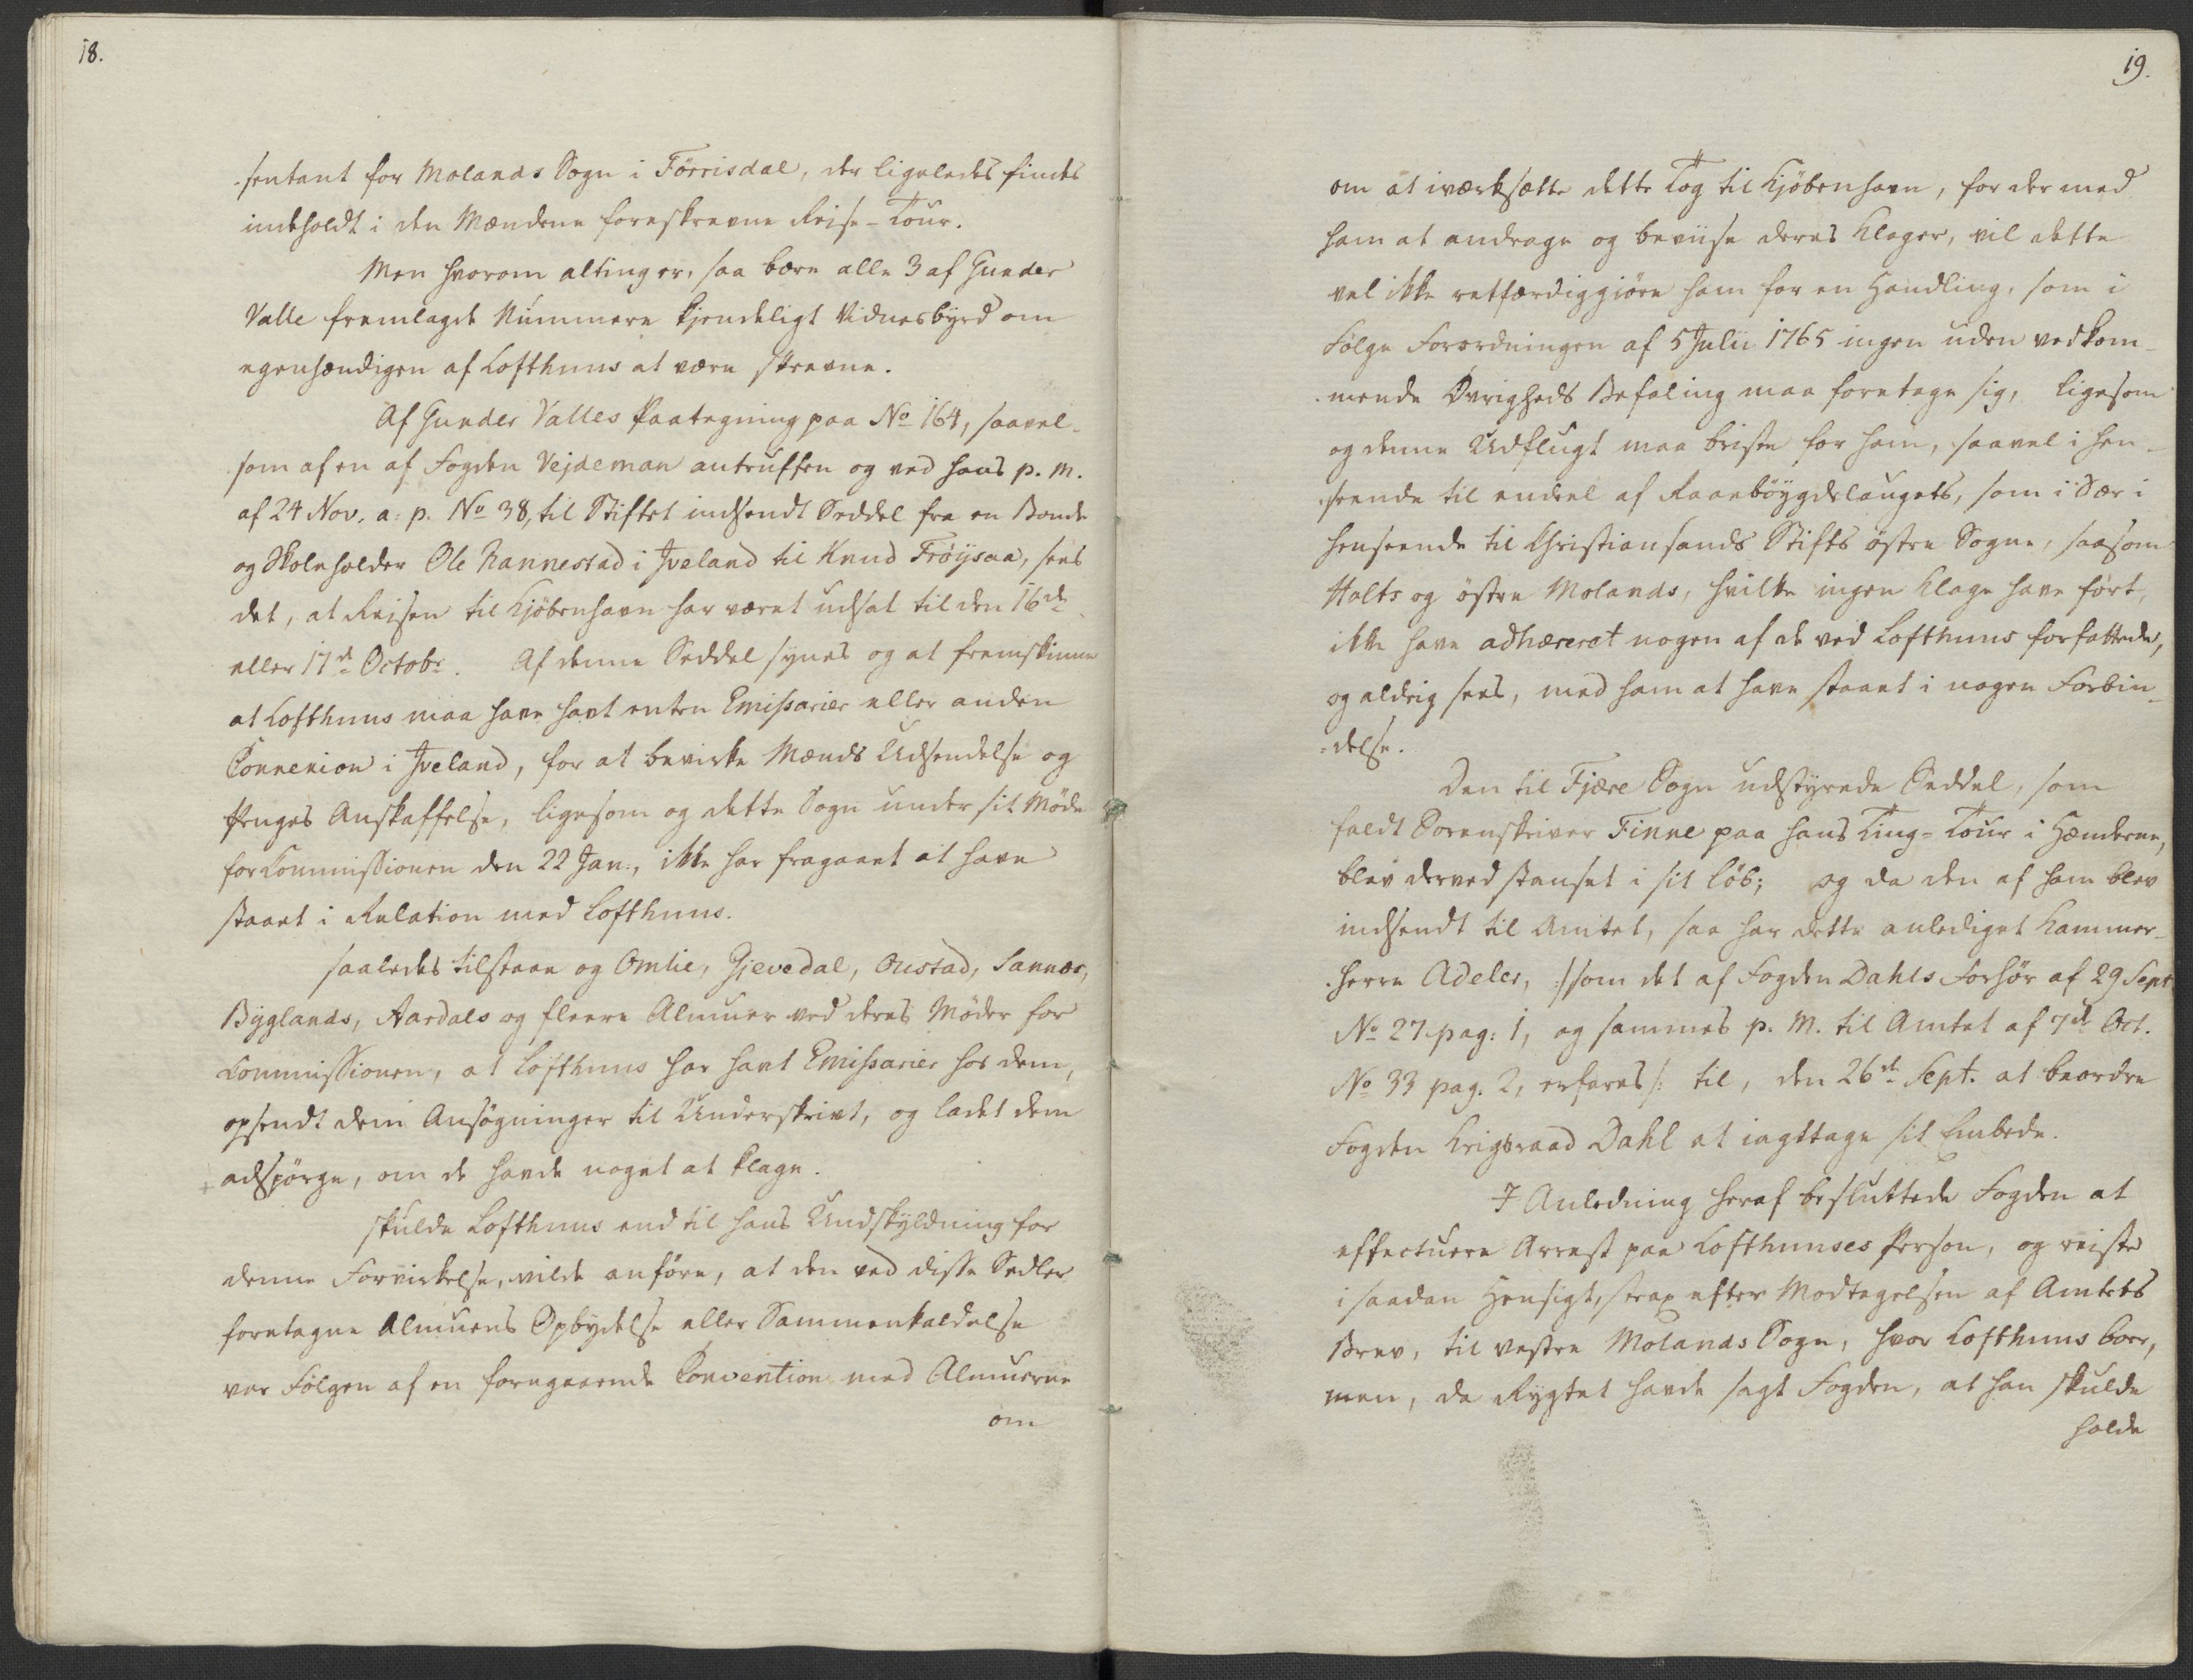 18.
-sentant for Molands Sogn i Förrisdal, der ligeledes findes
indeholdt i den Mændene foreskrevne Reise-Tour.
Men hvorom alting er, saa bære alle 3 af Gunder
Valle fremlagde Nummere kjendeligt Vidnesbyrd om
egenhændigen af Lofthuus at være skrevne.
Af Gunder Valles Paategning paa No 164, saavel-
som af en af Fogden Vejdeman antruffen og ved hans p. M.
af 24 Nov. a: p. No 38, til Stiftet indsendt Seddel fra en Bonde
og Skoleholder Ole Rannestad i Iveland til Knud Fröysaa, sees
det, at Reisen til Kjöbenhavn har været udsat til den 16de
eller 17d Octobr. Af denne Seddel synes og at fremskinne
at Lofthuus maa have havt enten Emissarier eller anden
Connexion i Iveland, for at bevirke Mænds Udsendelse og
Penges Anskaffelse, ligesom og dette Sogn under sit Möde
for Commissionen den 22 Jan., ikke har fragaaet at have
staaet i Relation med Lofthuus.
Saaledes tilstaae og Omlie, Gjevedal, Oustad, Sannes,
Byglands, Aardals og fleere Almuer ved deres Möder for
Commissionen, at Lofthuus har havt Emissarier hos dem,
opsendt dem Ansögninger til Underskrivt, og ladet dem
adspörge, om de havde noget at klage.
Skulde Lofthuus end til hans Undskyldning for
denne Forvirkelse, vilde anföre, at den ved disse Sedler
foretagne Almuens Opbydelse eller Sammenkaldelse
var Fölgen af en foregaaende Convention med Almuerne
om
19.
om at iværksætte dette Tog til Kjöbenhavn, for der med
ham at andrage og beviise deres Klager, vil dette
vel ikke retfærdiggiöre ham for en Handling, som i
Fölge Forordningen af 5 Julii 1765 ingen uden vedkom-
-mende Övrigheds Befaling maa foretage sig, ligesom
og denne Udflugt maa briste for ham, saavel i hen-
-seende til endeel af Raaböygdelaugets, som i Sær i
henseende til Christiansands Stifts östre Sogne, saasom
Holts og östre Molands, hvilke ingen Klage have fört,
ikke have adhæreret nogen af de ved Lofthuus forfattede,
og aldrig sees, med ham at have staaet i nogen Forbin-
-delse.
Den til Fjære Sogn udstyrede Seddel, som
faldt Sorenskriver Finne paa hans Ting-Tour i Hænderne,
blev derved standset i sit Löb; og da den af ham blev
indsendt til Amtet, saa har dette anlediget Kammer-
-herre Adeler, /:som det af Fogden Dahls Forhör af 29 Sept
No 27 pag: 1, og sammes p. M. til Amtet af 7de Oct.
No 33 pag. 2, erfares:/ til, den 26de Sept. at beordre
Fogden Krigsraad Dahl at iagttage sit Embede.
I Anledning heraf besluttede Fogden at
effectuere Arrest paa Lofthuuses Person, og reiste
i saadan Hensigt, strax efter Modtagelsen af Amtets
Brev, til vestre Molands Sogn, hvor Lofthuus boer,
men, da Rygtet havde sagt Fogden, at han skulde
holde